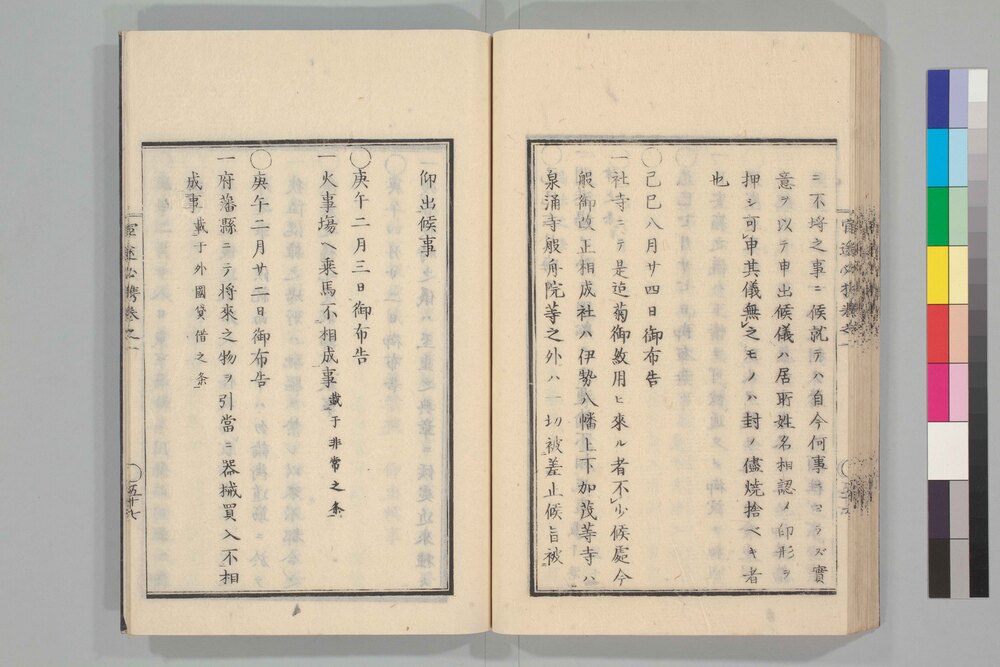 ニ不埒之事ニ候就テハ自今何事ニヨラズ實
意ヲ以テ申出候儀ハ居所姓名相認メ印形ヲ
押シ可申其儀無之モノハ封ノ儘焼捨ベキ者
也
○己巳八月廿四日御布告
一社寺ニテ是迄菊御紋用ヒ來ル者不少候處今
般御改正相成社ハ伊勢八幡上下加茂等寺ハ
泉涌寺般舟院等之外ハ一切被差止候旨被
仰出候事
○庚午二月三日御布告
一火事場ヘ乘馬不相成事載于非常之条
○庚午二月廿二日御布告
一府藩縣ニテ将來之物ヲ引當ニ器械買入不相
成事載于外國貸借之条